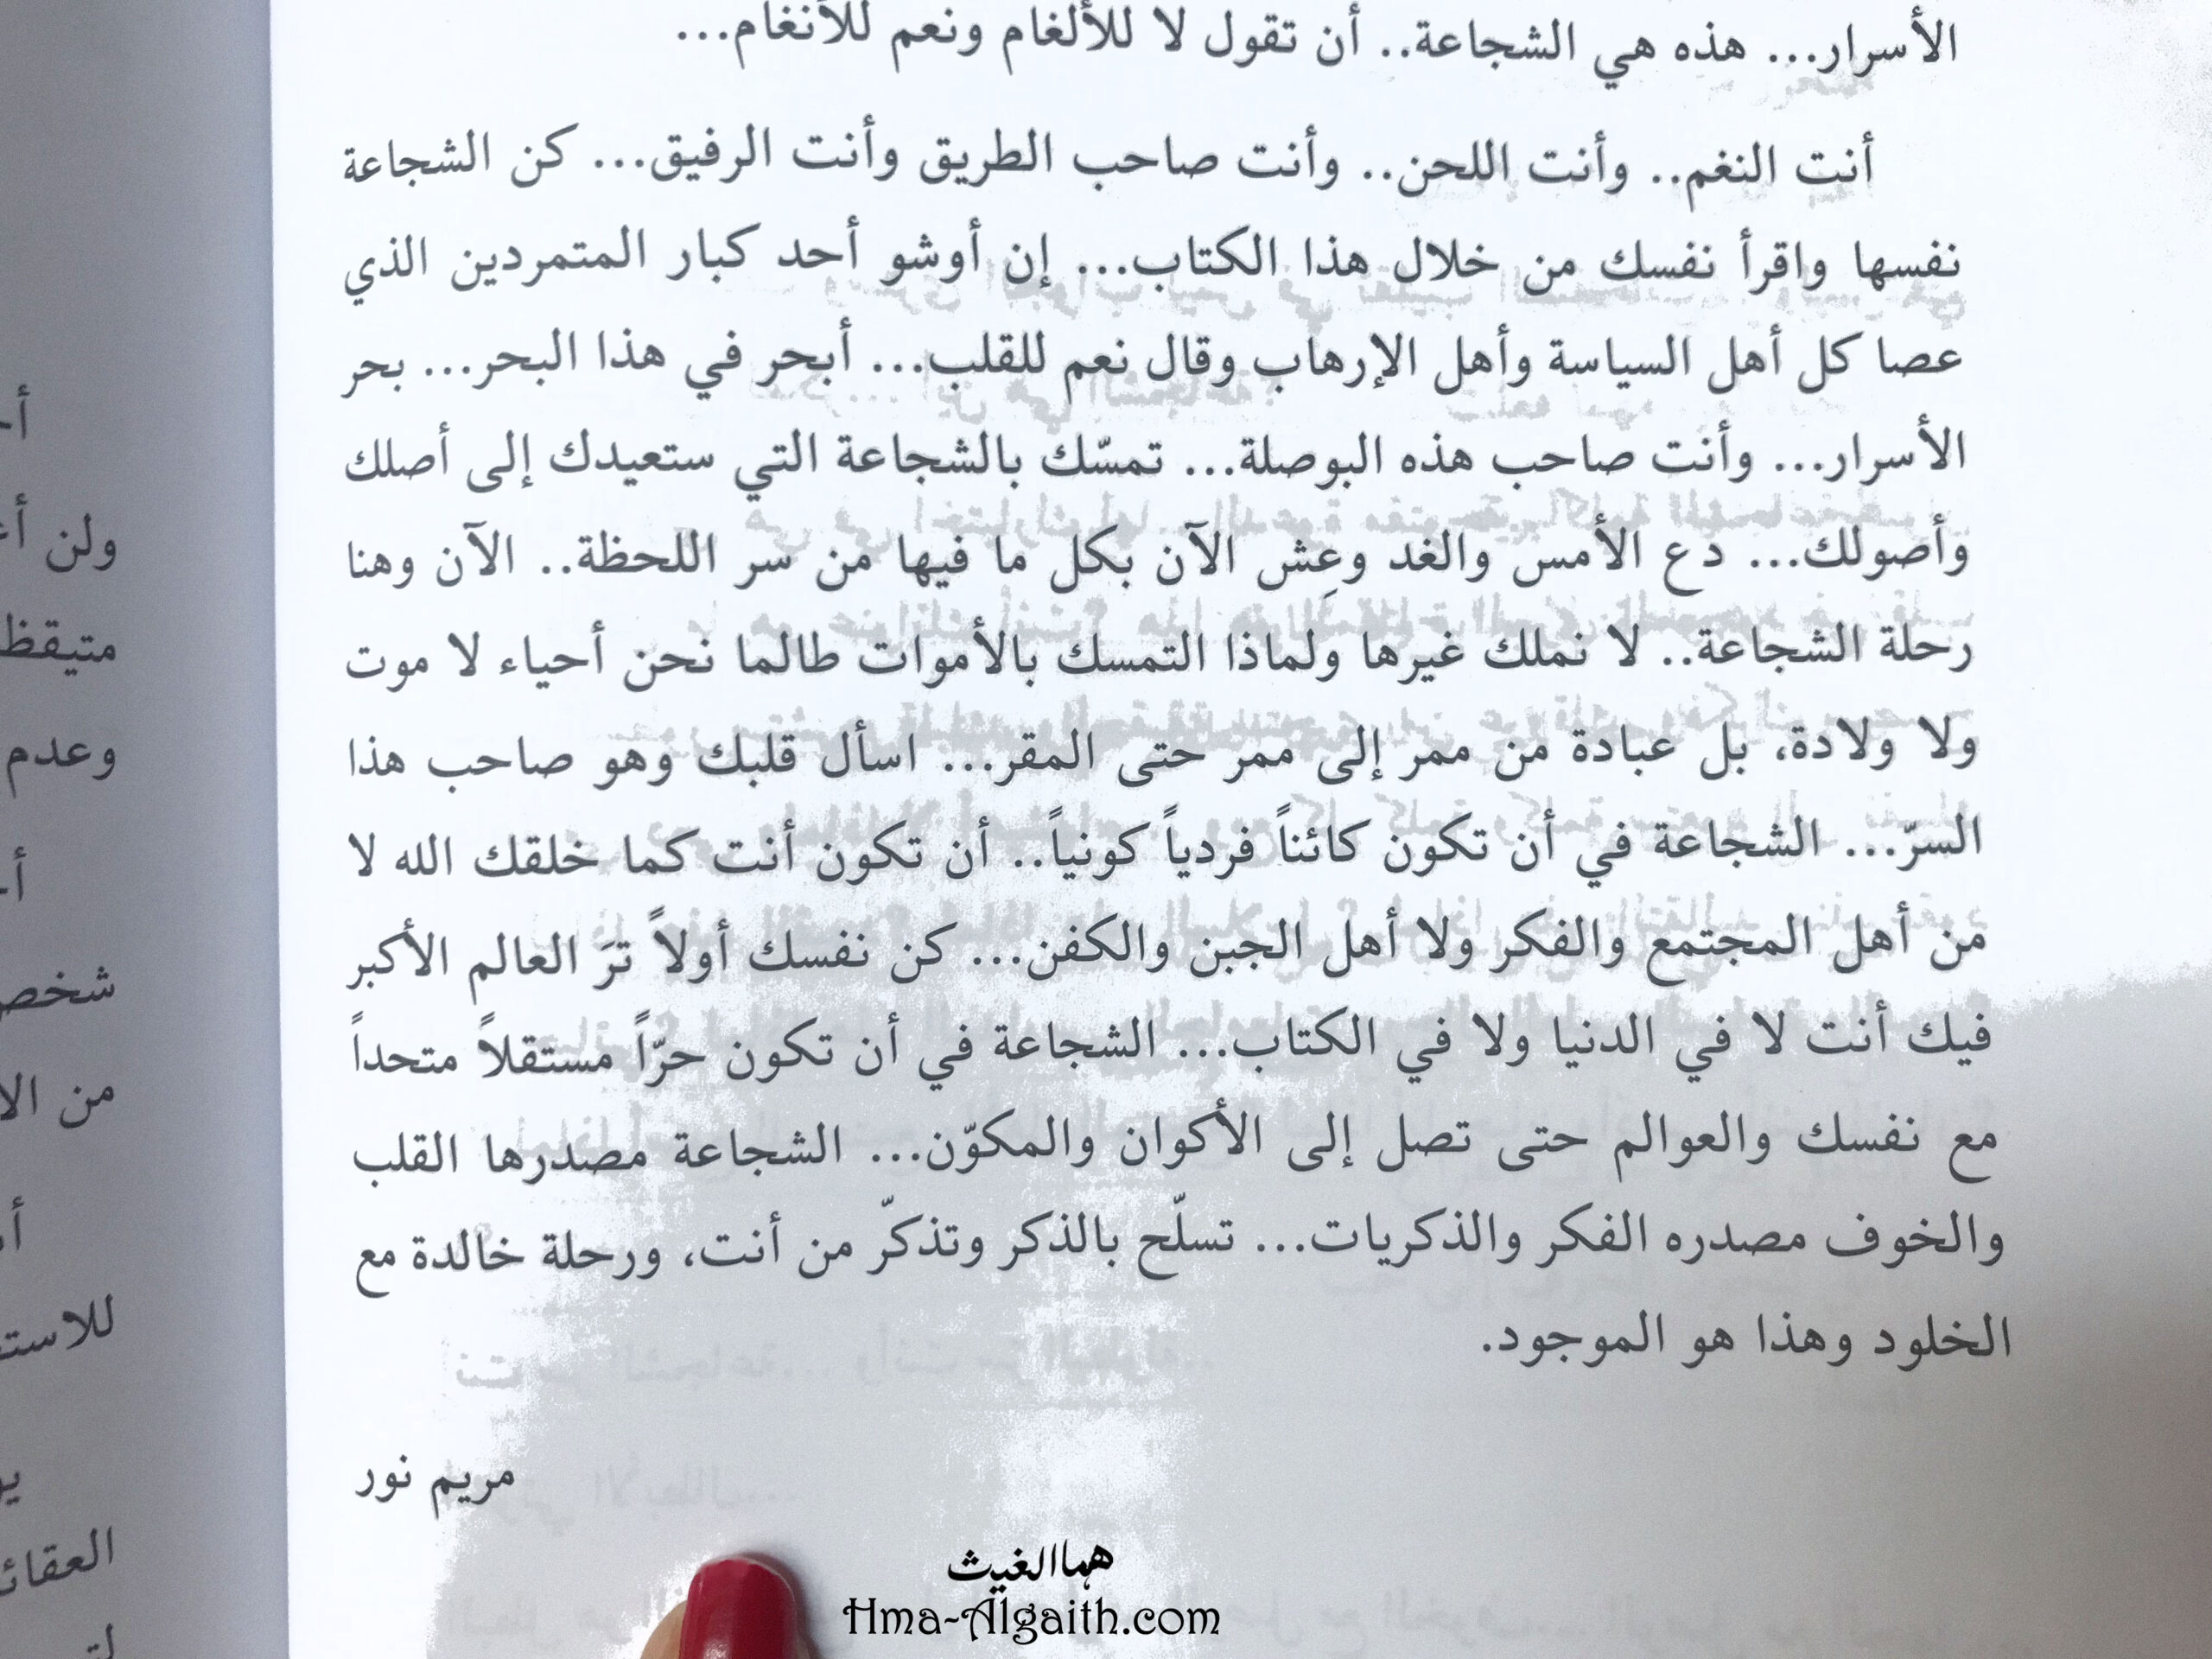 الأسرار... هذه هي الشجاعة.. أن تقول لا للألغام ونعم للأنغام...
أنت النغم.. وأنت اللحن.. وأنت صاحب الطريق وأنت الرفيق... كن الشجاعة
نفسها واقرأ نفسك من خلال هذا الكتاب... إن أوشو أحد كبار المتمردين الذي
عصا كل أهل السياسة وأهل الإرهاب وقال نعم للقلب... أبحر في هذا البحر... بحر
الأسرار... وأنت صاحب هذه البوصلة... تمسّك بالشجاعة التي ستعيدك إلى أصلك
وأصولك... دع الأمس والغد وعِش الآن بكل ما فيها من سر اللحظة.. الآن وهنا
رحلة الشجاعة.. لا نملك غيرها ولماذا التمسك بالأموات طالما نحن أحياء لا موت
ولا ولادة، بل عبادة من ممر إلى ممر حتى المقر... اسأل قلبك وهو صاحب هذا
السرّ... الشجاعة في أن تكون كائناً فردياً كونياً.. أن تكون أنت كما خلقك الله لا
من أهل المجتمع والفكر ولا أهل الجبن والكفن... كن نفسك أولاً ترَ العالم الأكبر
فيك أنت لا في الدنيا ولا في الكتاب... الشجاعة في أن تكون حرّاً مستقلاً متحداً
مع نفسك والعوالم حتى تصل إلى الأكوان والمكوّن... الشجاعة مصدرها القلب
والخوف مصدره الفكر والذكريات... تسلّح بالذكر وتذكرّ من أنت، ورحلة خالدة مع
الخلود وهذا هو الموجود.
مريم نور
هما الغيث
Hma-Algaith.com
ولن
متيقظ
وعدم
من